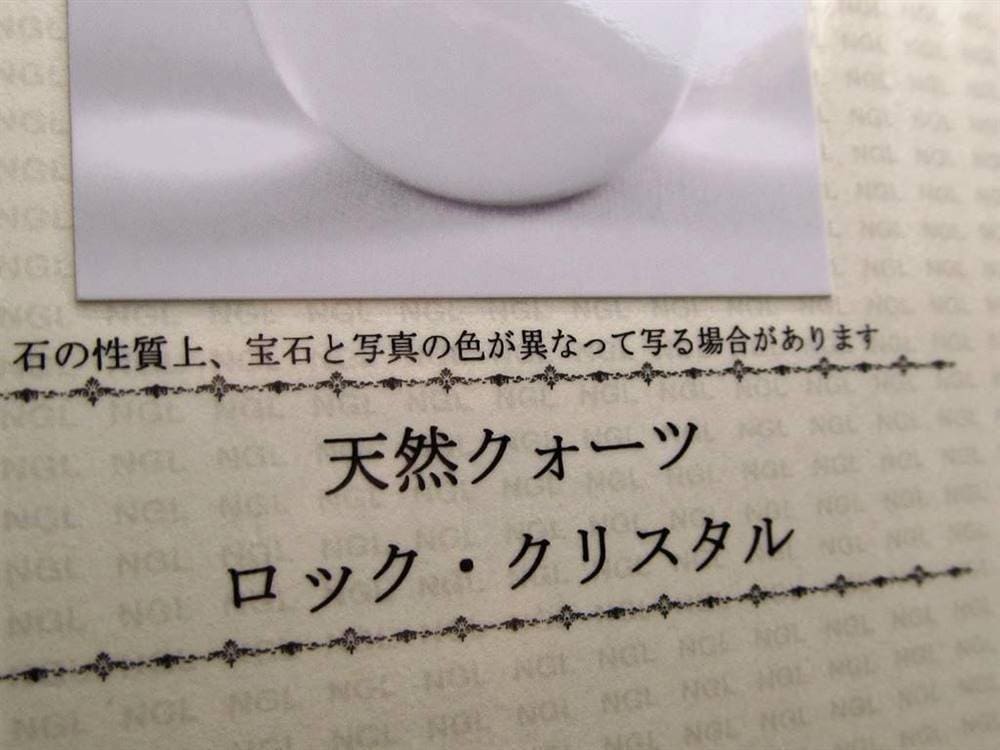 石の性質上、宝石と写真の色が異なって写る場合があります
天然クォーツ
ロック・クリスタル
NGL